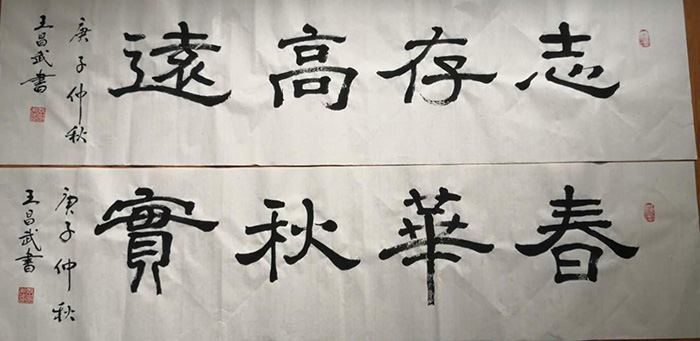 志存高遠
庚子仲秋
王昌武書
春華秋實
庚子仲秋
王昌武書